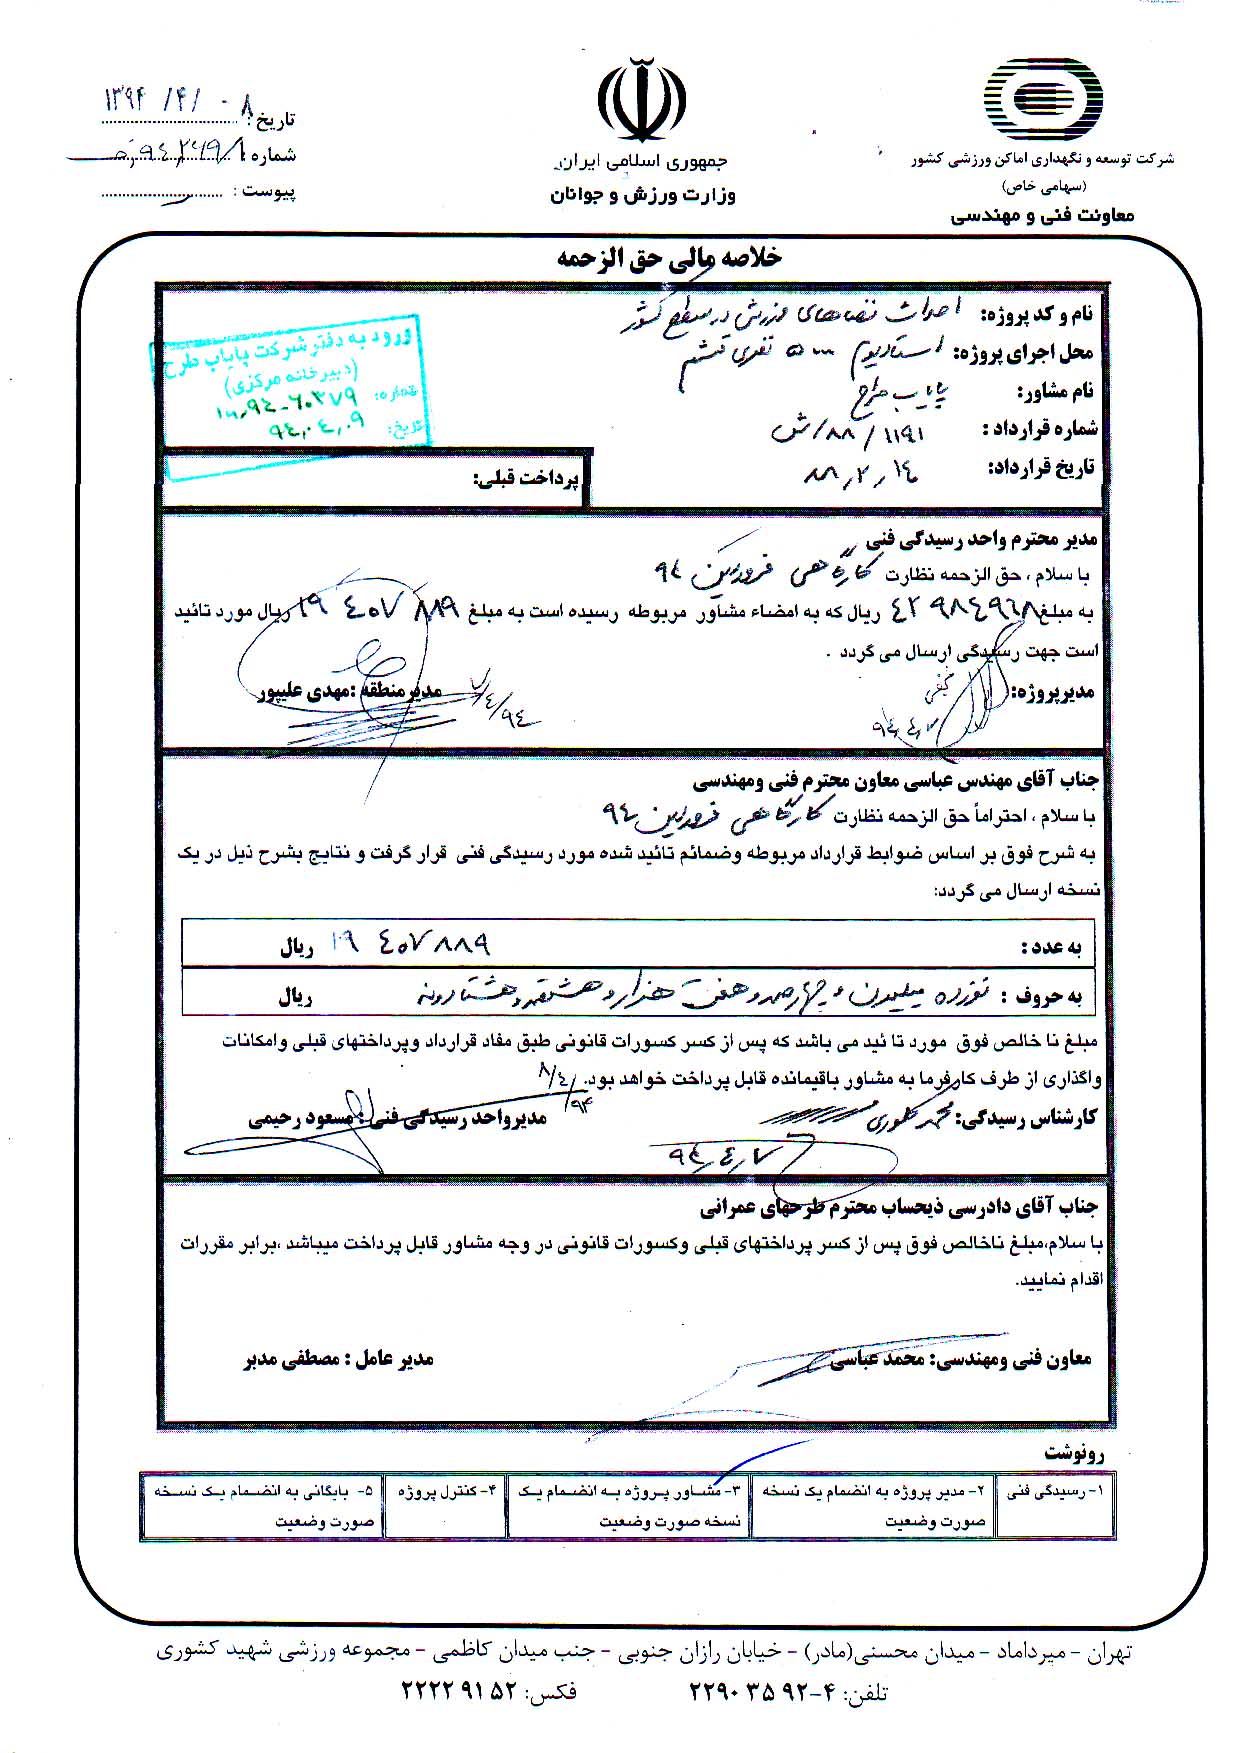 شرکت توسعه و نگهداری اماکن ورزشی کشور
(سهامی خاص)
معاونت فنی و مهندسی
جمهوری اسلامی ایران
وزارت ورزش و جوانان
تاریخ: ۱۳۹۴/۴/۰۸
شماره:
پیوست:
خلاصه مالی حق الزحمه
نام و کد پروژه: احداث فضاهای ورزشی در سطح کشور
محل اجرای پروژه: استادیوم ۵۰۰۰ نفری قشم
نام مشاور: پایاب طرح
شماره قرارداد: ۱۱۹۱/۸۸/ش
تاریخ قرارداد: ۸۸,۲,۱۴
ورود به دفتر شرکت پایاب طرح
(دبیرخانه مرکزی)
شماره:
تاریخ: ۹۴,۰۴,۰۹
پرداخت قبلی:
مدیر محترم واحد رسیدگی فنی
با سلام، حق الزحمه نظارت کارگاهی فروردین ۹۴
به مبلغ ۴۲۹۸۴۹۶۸ ریال که به امضاء مشاور مربوطه رسیده است به مبلغ ۱۹۴۰۷۸۸۹ ریال مورد تائید
است جهت رسیدگی ارسال می گردد.
مدیرپروژه: مدیر منطقه: مهدی علیپور
۹۴,۴,۷ ۹۴/۴/۷
جناب آقای مهندس عباسی معاون محترم فنی ومهندسی
با سلام، احتراماً حق الزحمه نظارت کارگاهی فروردین ۹۴
به شرح فوق بر اساس ضوابط قرارداد مربوطه وضمائم تائید شده مورد رسیدگی فنی قرار گرفت و نتایج بشرح ذیل در یک
نسخه ارسال می گردد:
به عدد: ۱۹۴۰۷۸۸۹ ریال
به حروف: نوزده میلیون و چهارصد و هفت هزار و هشتصد و هشتاد و نه ریال
مبلغ نا خالص فوق مورد تا ئید می باشد که پس از کسر کسورات قانونی طبق مفاد قرارداد وپرداختهای قبلی وامکانات
واگذاری از طرف کارفرما به مشاور باقیمانده قابل پرداخت خواهد بود. ۹۴/۴/۸
کارشناس رسیدگی: مدیرواحد رسیدگی فنی: مسعود رحیمی
۹۴,۴,۷
جناب آقای دادرسی ذیحساب محترم طرحهای عمرانی
با سلام،مبلغ ناخالص فوق پس از کسر پرداختهای قبلی وکسورات قانونی در وجه مشاور قابل پرداخت میباشد ،برابر مقررات
اقدام نمایید.
معاون فنی ومهندسی: محمد عباسی مدیر عامل: مصطفی مدبر
رونوشت
۱- رسیدگی فنی
۲- مدیر پروژه به انضمام یک نسخه
صورت وضعیت
۳- مشاور پروژه به انضمام یک
نسخه صورت وضعیت
۴- کنترل پروژه
۵- بایگانی به انضمام یک نسخه
صورت وضعیت
تهران - میرداماد - میدان محسنی(مادر) - خیابان رازان جنوبی - جنب میدان کاظمی - مجموعه ورزشی شهید کشوری
تلفن: ۴-۲۲۹۰۳۵۹۲ فکس: ۲۲۲۲۹۱۵۲